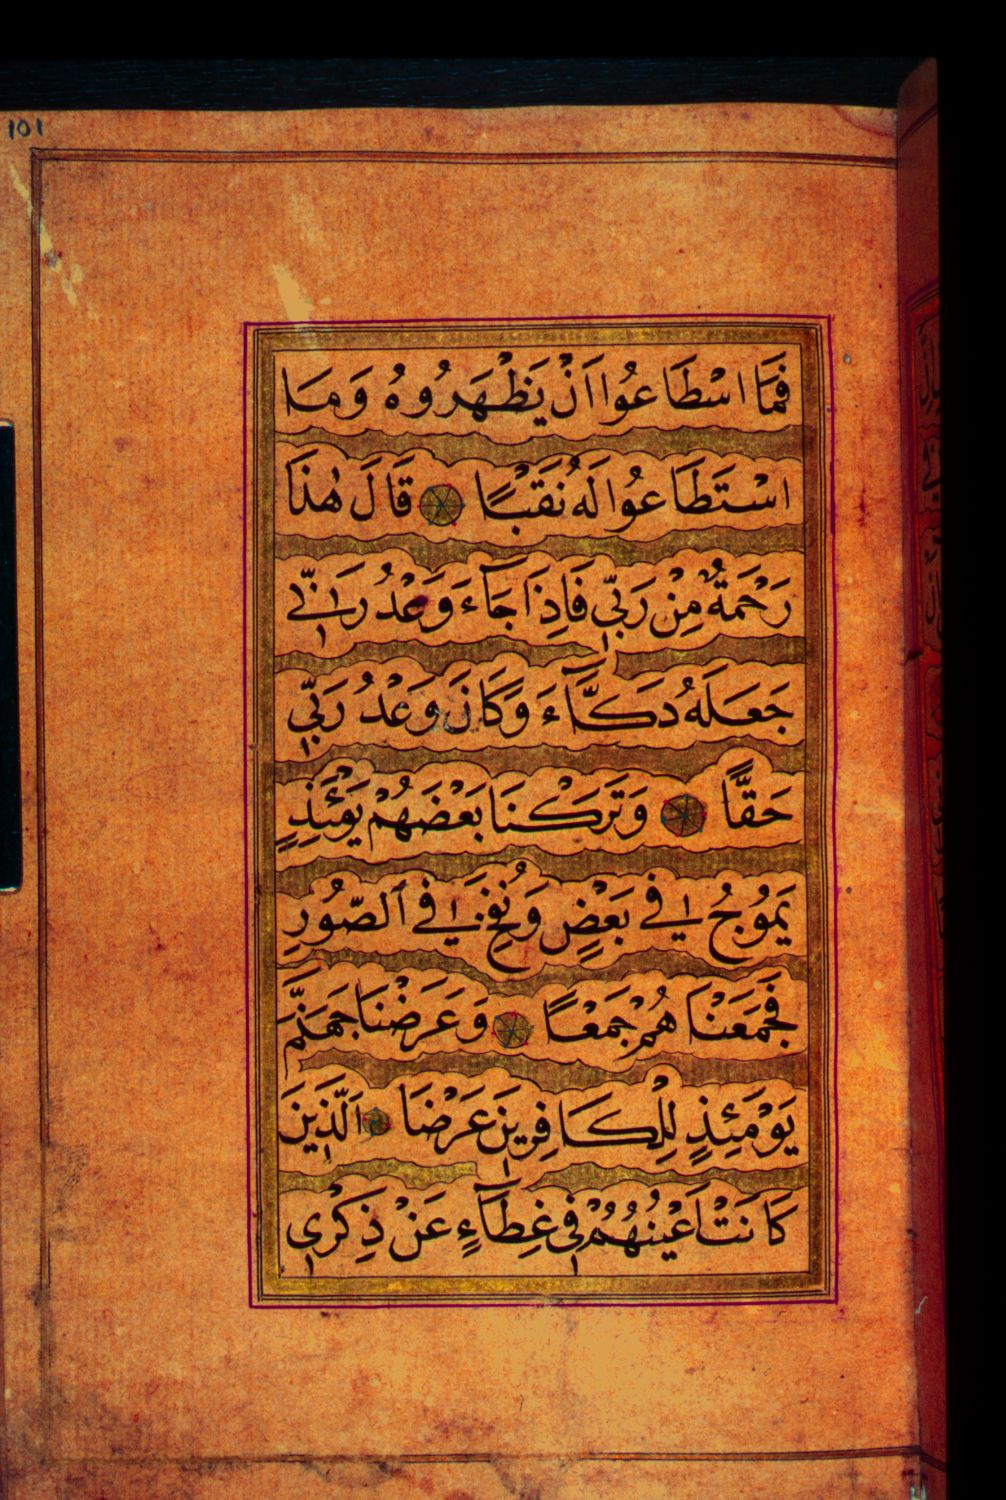 101
فَمَا اسْطَاعُوا اَنْ يَظْهَرُوهُ وَمَا
اسْتَطَاعُوا لَهُ نَقْبًا قَالَ هٰذَا
رَحْمَةٌ مِنْ رَبّٖي فَاِذَا جَآءَ وَعْدُ رَبّٖي
جَعَلَهُ دَكَّآءَ وَكَانَ وَعْدُ رَبّٖي
حَقًّا وَتَرَكْنَا بَعْضَهُمْ يَوْمَئِذٍ
يَمُوجُ فٖي بَعْضٍ وَنُفِخَ فِي الصُّورِ
فَجَمَعْنَاهُمْ جَمْعًا وَعَرَضْنَا جَهَنَّمَ
يَوْمَئِذٍ لِلْكَافِرٖينَ عَرْضَا اَلَّذٖينَ
كَانَتْ اَعْيُنُهُمْ فٖي غِطَآءٍ عَنْ ذِكْرٖي